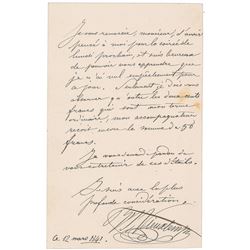 Je vous remercie, monsieur, d'avoir
pensé à moi pour la soirée de
lundi prochain, et suis heureux
de pouvoir vous apprendre que
je n'ai nul empêchement pour
ce jour. Seulement je dois vous
observer qu'outre les deux cents
francs qui sont mon
ordinaire, mon accompagnateur
reçoit la somme de 50
francs.
Je vous demande pardon de
vous entretenir de ces détails.
Je suis avec la plus
profonde considération
Ce 12 mars 1841.